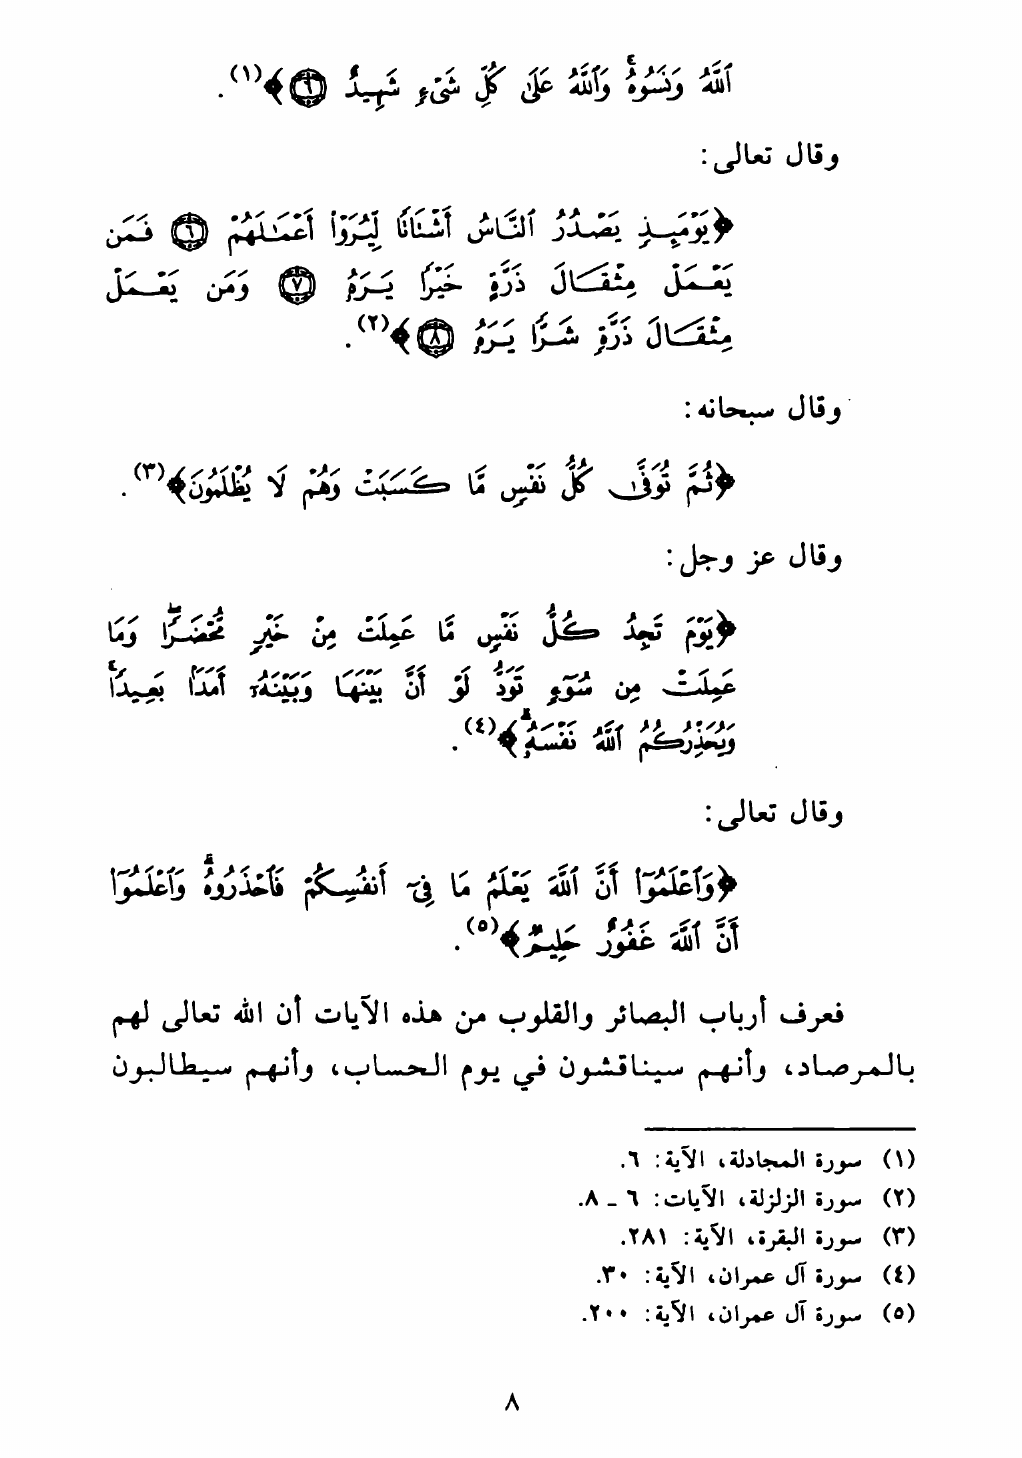 ٱللَّهُ وَنَسُوهُ ۚ وَٱللَّهُ عَلَىٰ كُلِّ شَىْءٍ شَهِيدٌ ۝٦﴾(١).
وقال تعالى:
﴿يَوْمَئِذٍ يَصْدُرُ ٱلنَّاسُ أَشْتَاتًا لِّيُرَوْا۟ أَعْمَـٰلَهُمْ ۝٦ فَمَن
يَعْمَلْ مِثْقَالَ ذَرَّةٍ خَيْرًا يَرَهُۥ ۝٧ وَمَن يَعْمَلْ
مِثْقَالَ ذَرَّةٍ شَرًّا يَرَهُۥ ۝٨﴾(٢).
وقال سبحانه:
﴿ثُمَّ تُوَفَّىٰ كُلُّ نَفْسٍ مَّا كَسَبَتْ وَهُمْ لَا يُظْلَمُونَ﴾(٣).
وقال عز وجل:
﴿يَوْمَ تَجِدُ كُلُّ نَفْسٍ مَّا عَمِلَتْ مِنْ خَيْرٍ مُّحْضَرًا ۖ وَمَا
عَمِلَتْ مِن سُوٓءٍ تَوَدُّ لَوْ أَنَّ بَيْنَهَا وَبَيْنَهُۥٓ أَمَدًۢا بَعِيدًا ۗ
وَيُحَذِّرُكُمُ ٱللَّهُ نَفْسَهُۥ ۗ﴾(٤).
وقال تعالى:
﴿وَٱعْلَمُوٓا۟ أَنَّ ٱللَّهَ يَعْلَمُ مَا فِىٓ أَنفُسِكُمْ فَٱحْذَرُوهُ ۚ وَٱعْلَمُوٓا۟
أَنَّ ٱللَّهَ غَفُورٌ حَلِيمٌ﴾(٥).
فعرف أرباب البصائر والقلوب من هذه الآيات أن الله تعالى لهم
بالمرصاد، وأنهم سيناقشون في يوم الحساب، وأنهم سيطالبون
(١) سورة المجادلة، الآية: ٦.
(٢) سورة الزلزلة، الآيات: ٦ ـ ٨.
(٣) سورة البقرة، الآية: ٢٨١.
(٤) سورة آل عمران، الآية: ٣٠.
(٥) سورة آل عمران، الآية: ٢٠٠.
٨